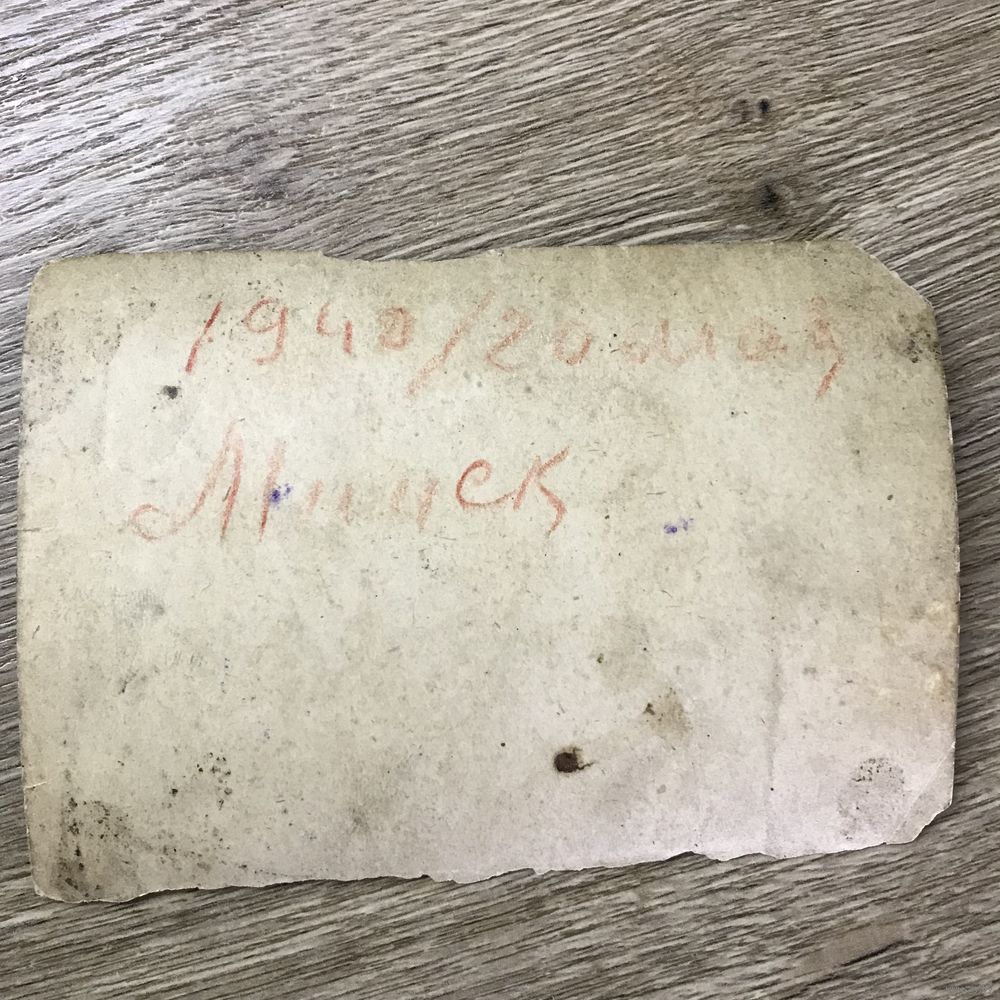 1940/20 мая
Минск